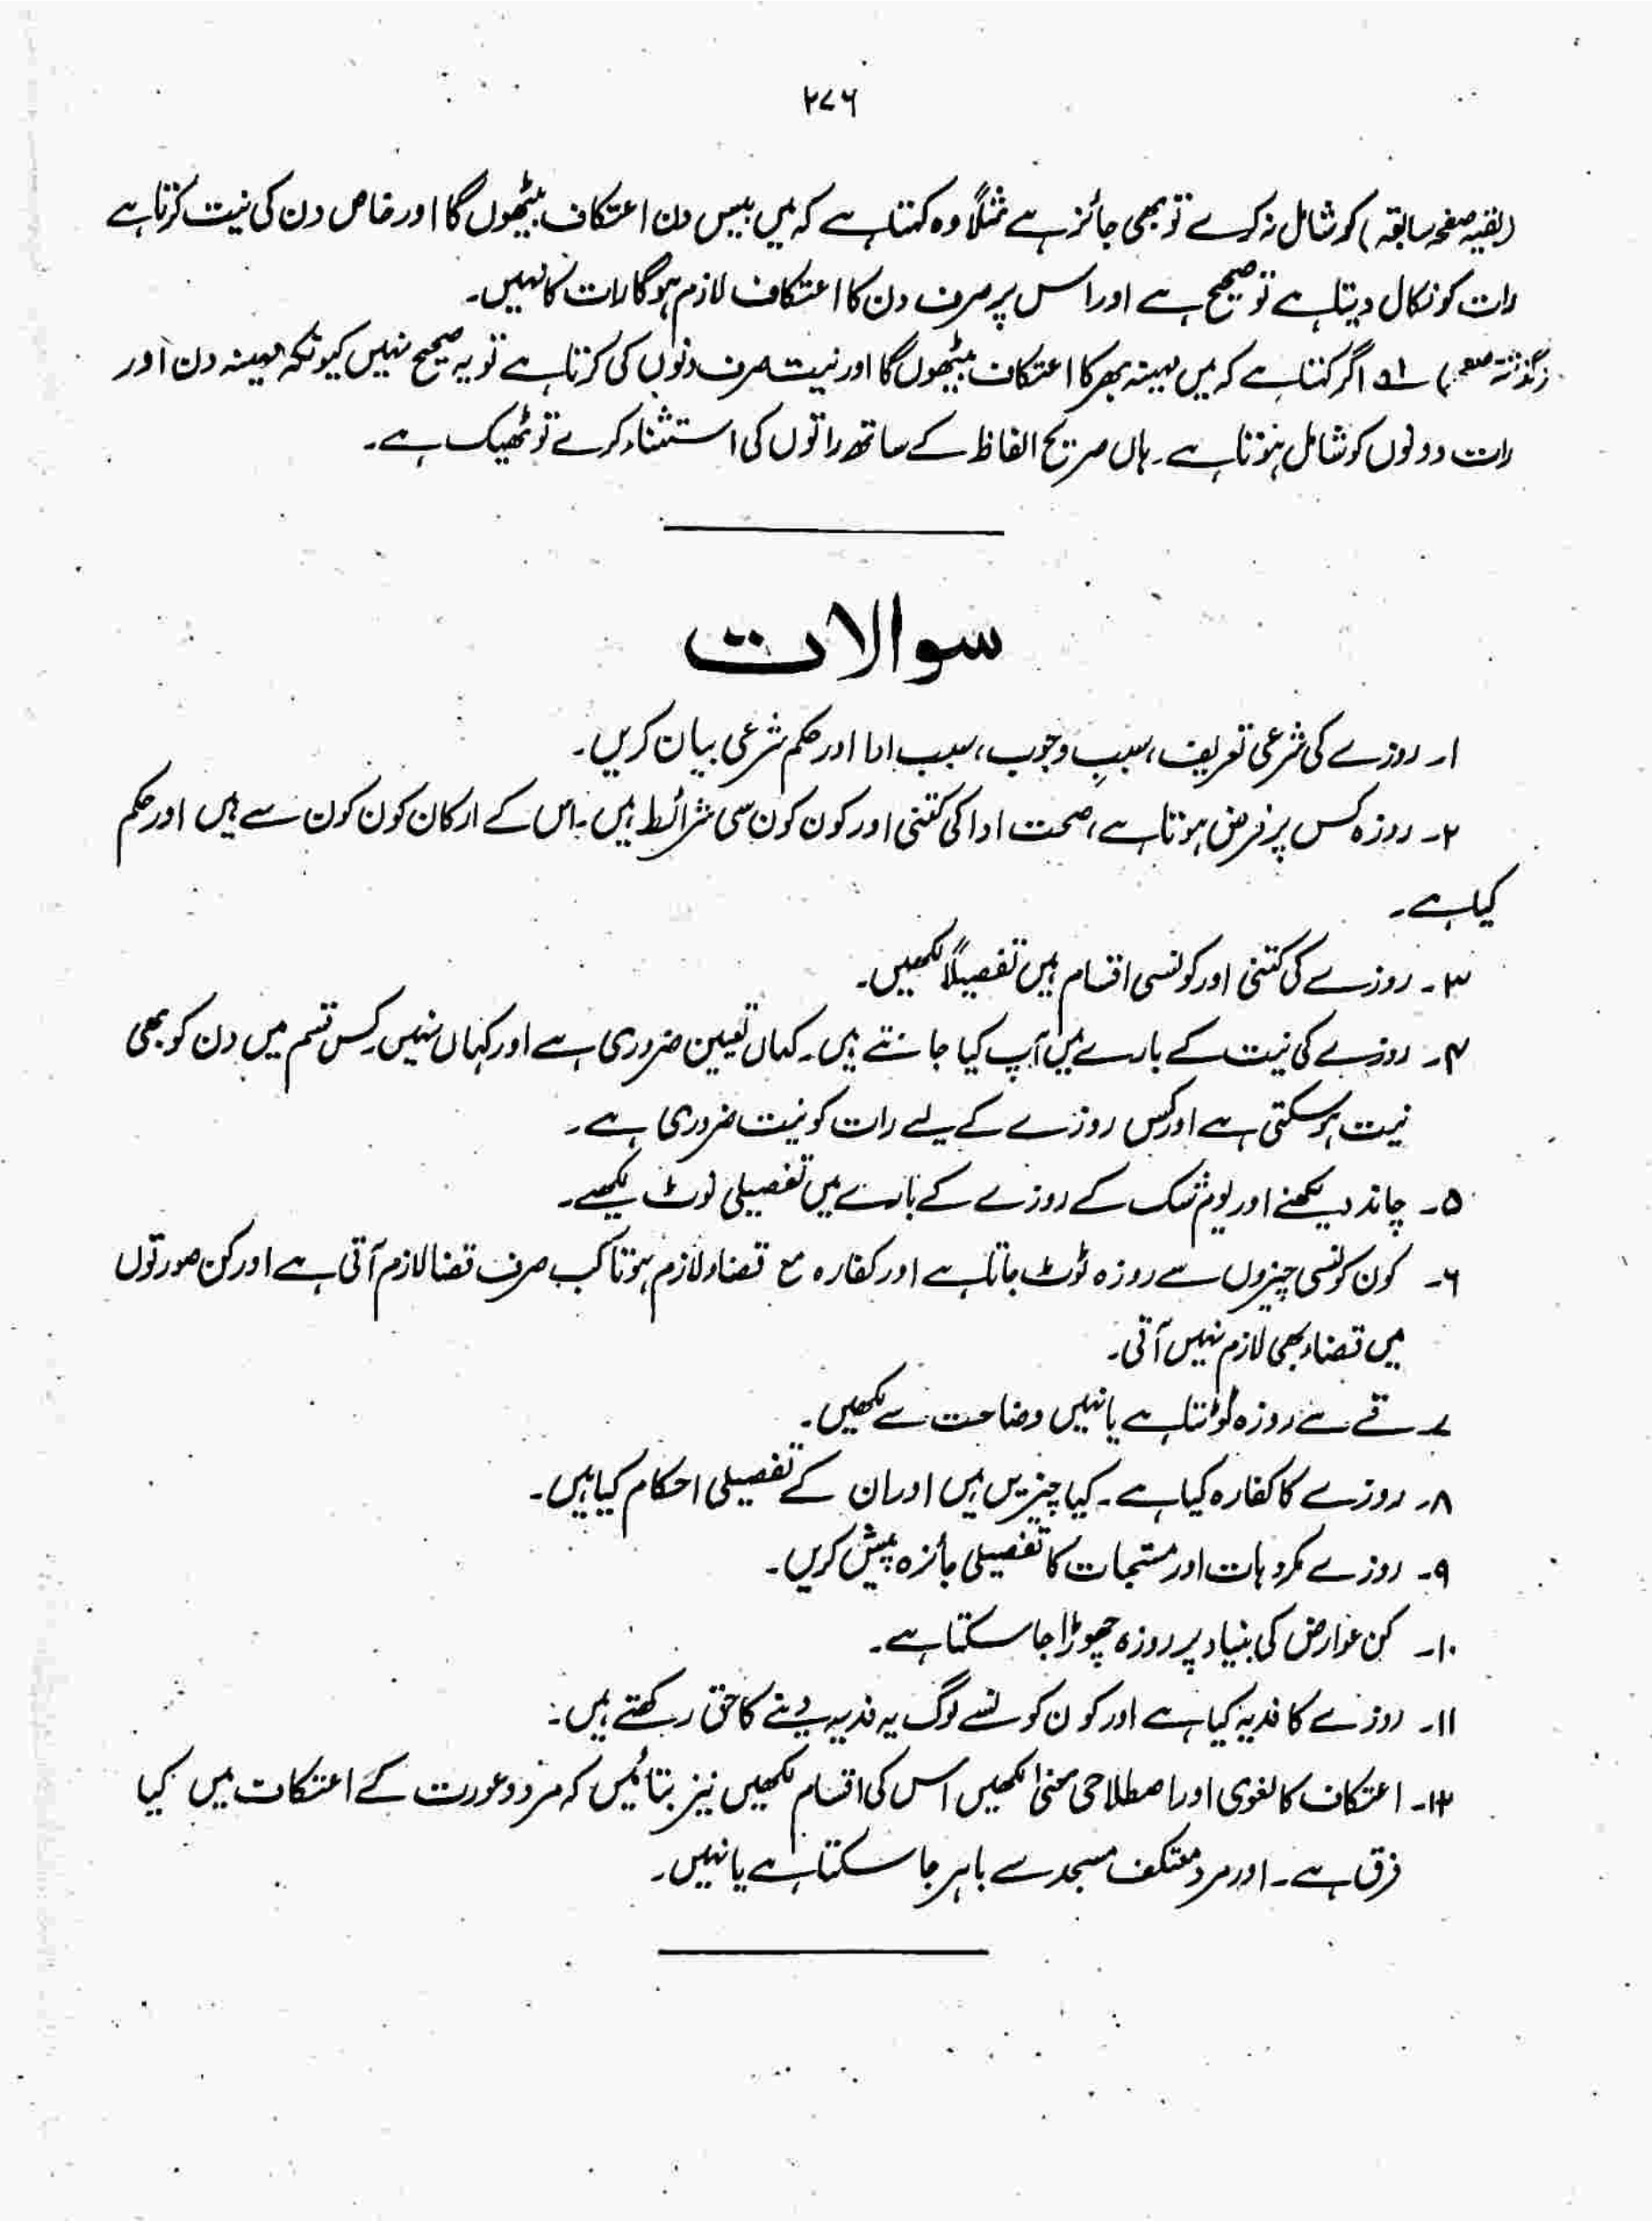 ۲۷۶
(بقیہ صفحہ سابقہ) کو شامل نہ کرے تو بھی جائز ہے مثلاً وہ کہتا ہے کہ میں بیس دن اعتکاف بیٹھوں گا اور خاص دن کی نیت کرتا ہے
رات کو نکال دیتا ہے تو صحیح ہے اور اس پر صرف دن کا اعتکاف لازم ہوگا رات کا نہیں۔
(گذشتہ صفحہ) ۱ اگر کہتا ہے کہ میں مہینہ بھر کا اعتکاف بیٹھوں گا اور نیت صرف دنوں کی کرتا ہے تو یہ صحیح نہیں کیونکہ مہینہ دن اور
رات دونوں کو شامل ہوتا ہے۔ ہاں صریح الفاظ کے ساتھ راتوں کی استثناء کرے تو ٹھیک ہے۔
سوالات
۱۔ روزے کی شرعی تعریف، سببِ وجوب، سبب ادا اور حکم شرعی بیان کریں۔
۲۔ روزہ کس پر فرض ہوتا ہے، صحت ادا کی کتنی اور کون کون سی شرائط ہیں۔ اس کے ارکان کون کون سے ہیں اور حکم
کیا ہے۔
۳۔ روزے کی کتنی اور کونسی اقسام ہیں تفصیلاً لکھیں۔
۴۔ روزے کی نیت کے بارے میں آپ کیا جانتے ہیں۔ کہاں تعیین ضروری ہے اور کہاں نہیں۔ کس قسم میں دن کو بھی
نیت ہو سکتی ہے اور کس روزے کے لیے رات کو نیت ضروری ہے۔
۵۔ چاند دیکھنے اور یوم شک کے روزے کے بارے میں تفصیلی نوٹ لکھیے۔
۶۔ کون کونسی چیزوں سے روزہ ٹوٹ جاتا ہے اور کفارہ مع قضاء لازم ہوتا کب صرف قضا لازم آتی ہے اور کن صورتوں
میں قضاء بھی لازم نہیں آتی۔
۷۔ قے سے روزہ ٹوٹتا ہے یا نہیں وضاحت سے لکھیں۔
۸۔ روزے کا کفارہ کیا ہے۔ کیا چیزیں ہیں اور ان کے تفصیلی احکام کیا ہیں۔
۹۔ روزے مکروہات اور مستحبات کا تفصیلی جائزہ پیش کریں۔
۱۰۔ کن عوارض کی بنیاد پر روزہ چھوڑا جا سکتا ہے۔
۱۱۔ روزے کا فدیہ کیا ہے اور کون کونسے لوگ یہ فدیہ دینے کا حق رکھتے ہیں۔
۱۲۔ اعتکاف کا لغوی اور اصطلاحی معنیٰ لکھیں اس کی اقسام لکھیں نیز بتائیں کہ مرد و عورت کے اعتکاف میں کیا
فرق ہے۔ اور مرد معتکف مسجد سے باہر جا سکتا ہے یا نہیں۔